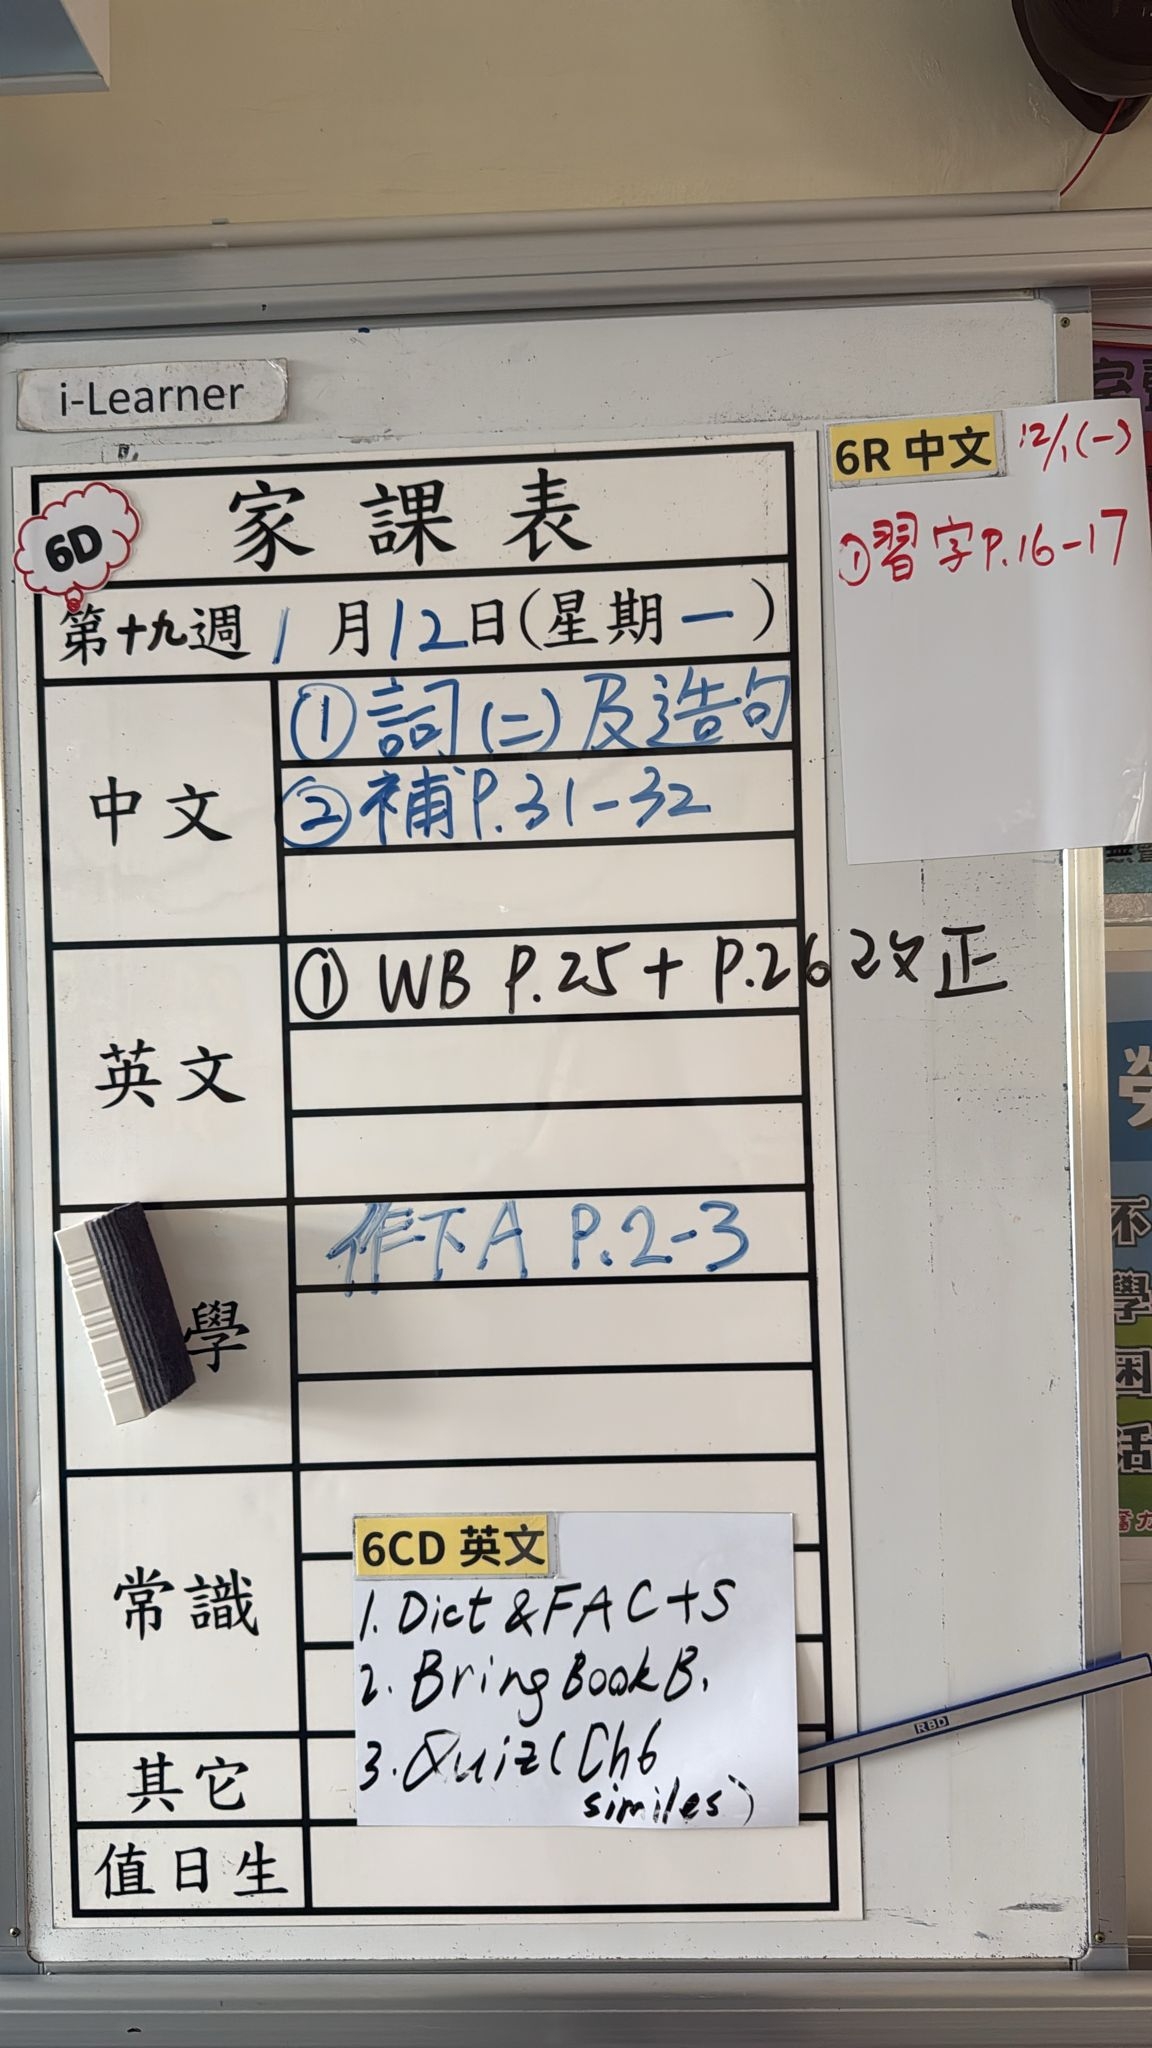 i-Learner
6D
家課表
第十九週 1月12日(星期一)
中文
① 詞(二)及造句
② 補P.31-32
英文
① WB P.25 + P.26 改正
學
作下A P.2-3
常識
其它
值日生
6CD 英文
1. Dict & FAC+S
2. Bring Book B.
3. Quiz (Ch6
similes)
RBD
6R 中文 12/1(一)
① 習字P.16-17
不
學
困
活